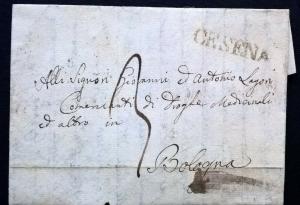 CESENA
Alli Signori Giovanni ed Antonio
Comercianti di Droghe Medicinali
ed altro in
3
Bologna